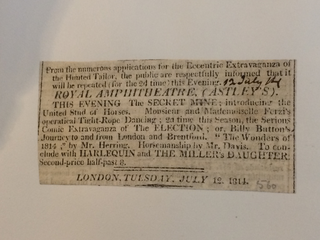 From the numerous applications for the Eccentric Extravaganza of
the Hunted Tailor, the public are respectfully informed that it
will be repeated (for the 2d time) this Evening. 12 July 14
ROYAL AMPHITHEATRE, (ASTLEY'S).
THIS EVENING The SECRET MINE; introducing the
United Stud of Horses. Monsieur and Mademoiselle Ferzi's
operatical Tight-Rope Dancing; 2d time this Season, the Serious
Comic Extravaganza of The ELECTION; or, Billy Button's
Journey to and from London and Brentford. "The Wonders of
1814," by Mr. Herring. Horsemanship by Mr. Davis. To con-
clude with HARLEQUIN and THE MILLER'S DAUGHTER.
Second-price half-past 8.
LONDON, TUESDAY, JULY 12, 1814.